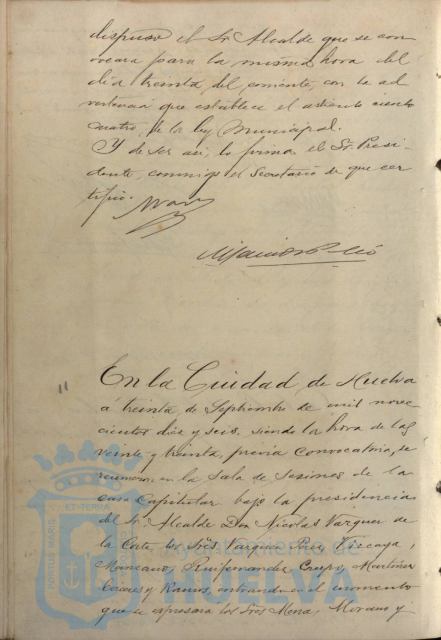 dispuso el Sr Alcalde que se con
vocara para la misma hora del
día treinta del corriente, con la ad
vertencia que establece el artículo ciento
cuatro, de la ley Municipal.
Y de ser así, lo firma el Sr. Presi-
dente, conmigo el Secretario de que cer
tifico.
En la Ciudad de Huelva
á treinta de Septiembre de mil nove
cientos diez y seis, siendo la hora de las
veinte y treinta, previa convocatoria, se
reunieron en la Sala de Sesiones de la
casa Capitular bajo la presidencia
del Sr. Alcalde Don Nicolas Vazquez de
la Corte, los Sres Vazquez Perez, Vizcaya,
Manzano, Ruifernandez, Crespo, Martinez
y Ramos, entrando en el momento
que se expresara los Sres Mena, Moreno y
PORTUS MARIS ET TERRÆ
Ayuntamiento de
HUELVA